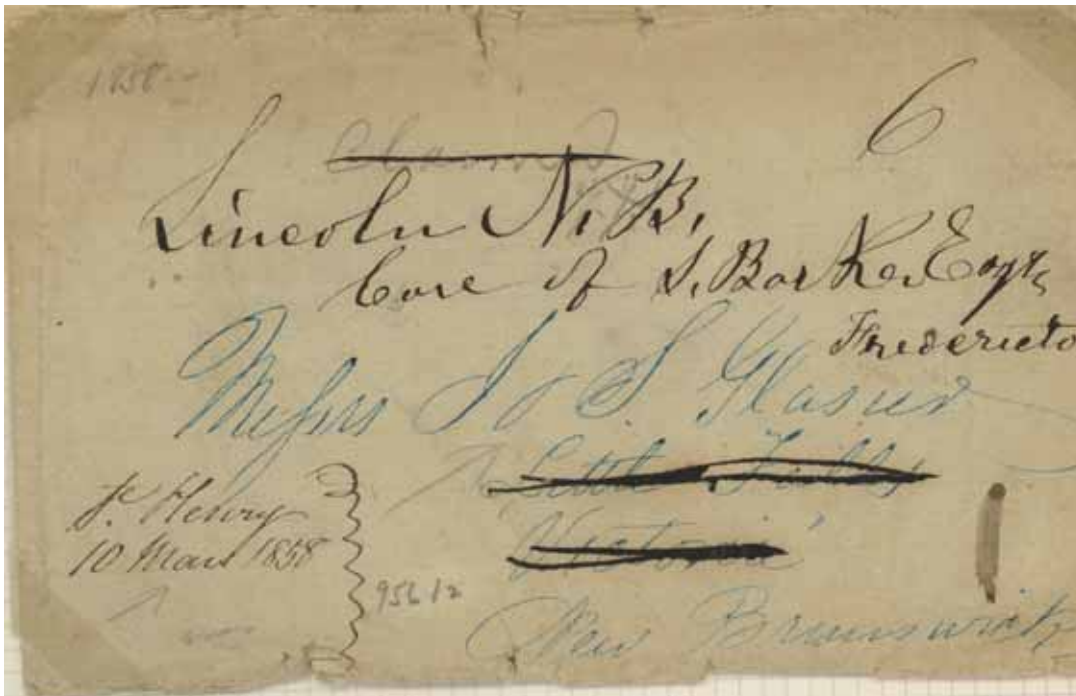 1858
6
Lincoln N.B.
Care of S. Barker Esqr
Fredericto
Messrs J & S Glasier
Little Falls
Victoria
New Brunswick
J. Henry
10 Mar 1858
956 12